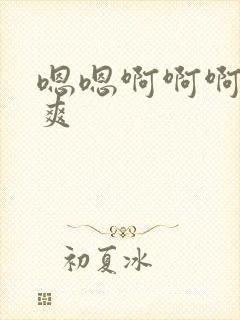 嗯嗯啊啊啊
爽
初夏冰